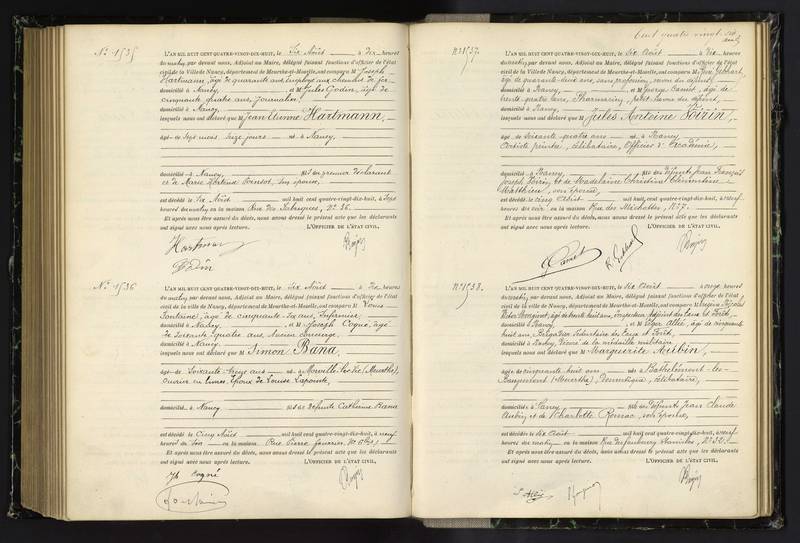 N° 1535
L'AN MIL HUIT CENT QUATRE-VINGT-DIX-HUIT, le Six Août à Dix heures
du matin, par devant nous, Adjoint au Maire, délégué faisant fonctions d'officier de l'état
civil de la Ville de Nancy, département de Meurthe-et-Moselle, ont comparu M Joseph
Hartmann, âgé de quarante ans, employé aux chemins de fer
domicilié à Nancy, et M Jules Godin, âgé de
cinquante quatre ans, Journalier,
domicilié à Nancy,
lesquels nous ont déclaré que M Jean Etienne Hartmann,
âgé de Sept mois seize jours né à Nancy,
domicilié à Nancy, fils du premier déclarant
et de Marie son épouse,
est décédé le Six Août mil huit cent quatre-vingt-dix-huit, à Sept
heures du matin en la maison Rue des Fabriques, N° 36.
Et après nous être assuré du décès, nous avons dressé le présent acte que les déclarants
ont signé avec nous après lecture. L'OFFICIER DE L'ÉTAT CIVIL,
Hartmann
Godin
N° 1536
L'AN MIL HUIT CENT QUATRE-VINGT-DIX-HUIT, le Six Août à Dix heures
du matin, par devant nous, Adjoint au Maire, délégué faisant fonctions d'officier de l'état
civil de la Ville de Nancy, département de Meurthe-et-Moselle, ont comparu M Louis
Fontaine, âgé de cinquante six ans, Infirmier,
domicilié à Nancy, et M Joseph Cogné, âgé
de soixante quatre ans, ancien concierge,
domicilié à Nancy,
lesquels nous ont déclaré que M Simon Bana,
âgé de Soixante ans né à (Meurthe),
époux de Louise Lapointe,
domicilié à Nancy fils de défunte Catherine Bana
est décédé le Cinq Août mil huit cent quatre-vingt-dix-huit, à neuf
heures du soir en la maison Rue Pierre Fourier, N°
Et après nous être assuré du décès, nous avons dressé le présent acte que les déclarants
ont signé avec nous après lecture. L'OFFICIER DE L'ÉTAT CIVIL,
Cogné
Fontaine
Cent quatre vingt six
N° 1537.
L'AN MIL HUIT CENT QUATRE-VINGT-DIX-HUIT, le Six Août à Dix heures
du matin, par devant nous, Adjoint au Maire, délégué faisant fonctions d'officier de l'état
civil de la Ville de Nancy, département de Meurthe-et-Moselle, ont comparu M René Gebhart,
âgé de quarante huit ans, sans profession, neveu du défunt,
domicilié à Nancy, et M George Camet, âgé de
trente quatre ans, Pharmacien, petit neveu du défunt,
domicilié à Nancy,
lesquels nous ont déclaré que M Jules Antoine Voirin,
âgé de soixante quatre ans né à Nancy
Artiste peintre, célibataire, Officier d'Académie,
domicilié à Nancy, fils des défunts Jean François
Joseph Voirin et de Madeleine Christine Clémentine
Matthieu, son épouse,
est décédé le cinq Août mil huit cent quatre-vingt-dix-huit, à neuf
heures du soir en la maison Rue des Michottes, N° 7.
Et après nous être assuré du décès, nous avons dressé le présent acte que les déclarants
ont signé avec nous après lecture. L'OFFICIER DE L'ÉTAT CIVIL,
G Camet
R. Gebhart
N° 1538.
L'AN MIL HUIT CENT QUATRE-VINGT-DIX-HUIT, le Six Août à onze heures
du matin, par devant nous, Adjoint au Maire, délégué faisant fonctions d'officier de l'état
civil de la ville de Nancy, département de Meurthe-et-Moselle, ont comparu M Eugène Nicolas
âgé de trente huit ans, Inspecteur Adjoint des Eaux et Forêts,
domicilié à Nancy, et M Allié, âgé de cinquante
huit ans, Brigadier Sédentaire des Eaux et Forêts,
domicilié à Nancy, Décoré de la médaille militaire
lesquels nous ont déclaré que M Marguerite Aubin,
âgée de cinquante huit ans née à Bathelémont-les-
Bauzemont (Meurthe), Domestique, célibataire,
domiciliée à Nancy, fille des défunts Jean Claude
Aubin et de Charlotte son épouse,
est décédée le Six Août mil huit cent quatre-vingt-dix-huit, à neuf
heures du matin en la maison Rue du faubourg Stanislas, N°
Et après nous être assuré du décès, nous avons dressé le présent acte que les déclarants
ont signé avec nous après lecture. L'OFFICIER DE L'ÉTAT CIVIL,